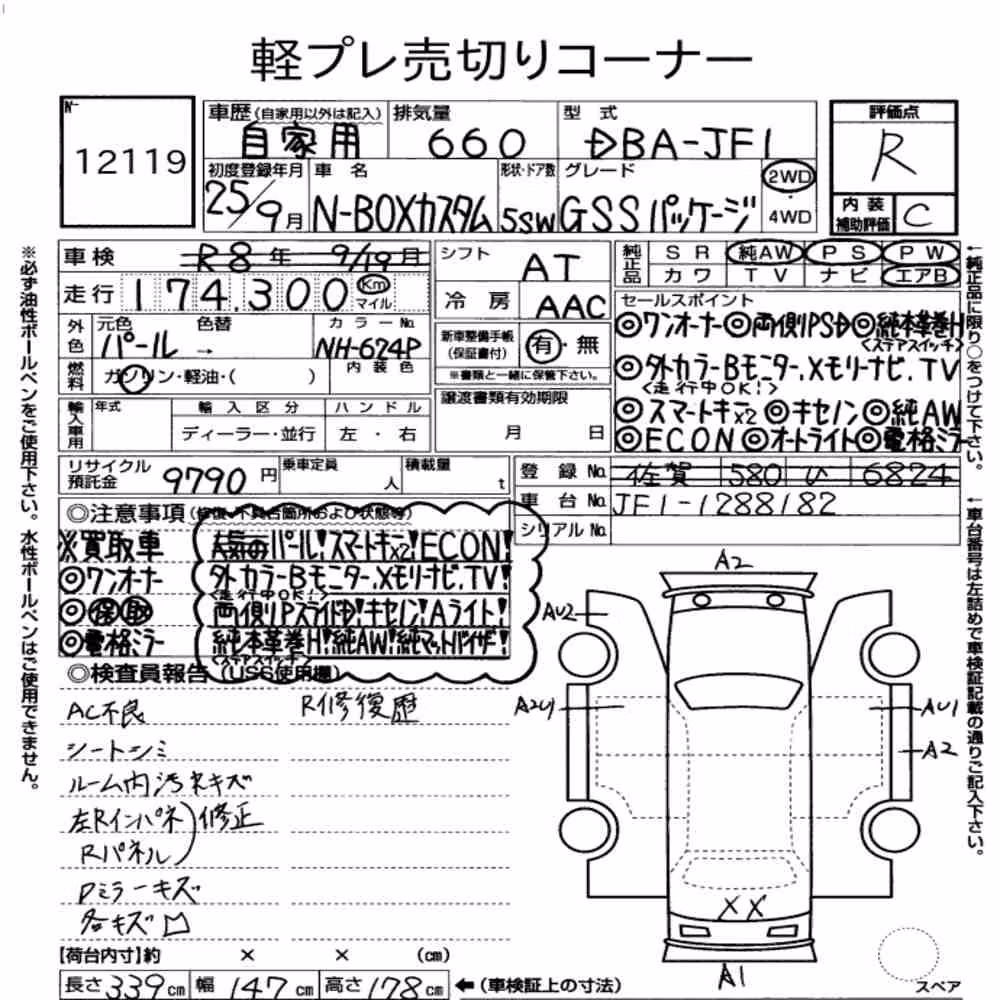 軽プレ売切りコーナー
No
12119
車歴 (自家用以外は記入) 自家用
排気量 660
型式 DBA-JF1
評価点 R
初度登録年月 25/9月
車名 N-BOXカスタム
形状・ドア数 5SW
グレード GSSパッケージ
2WD・4WD
内装補助評価 C
車検 R8年 9/19月
シフト AT
純正品 SR 純AW PS PW
カワ TV ナビ エアB
走行 174,300 Km マイル
冷房 AAC
セールスポイント
◎ワンオーナー◎両側PSD◎純本革巻H
<ステアスイッチ>
外色 元色 パール → 色替
カラーNo. NH-624P
内装色
新車整備手帳(保証書付) 有・無
※書類と一緒に保管下さい。
◎外カラーBモニター.Xモリーナビ.TV
<走行中OK!>
燃料 ガソリン・軽油・( )
◎スマートキーx2◎キセノン◎純AW
◎ECON◎オートライト◎電格ミラー
輸入車用 年式 輸入区分 ハンドル
ディーラー・並行 左・右
譲渡書類有効期限 月 日
リサイクル預託金 9790円
乗車定員 人
積載量 t
登録No. 佐賀 580 ひ 6824
車台No. JF1-1288182
シリアルNo.
◎注意事項(修復、不具合箇所および状態等)
※買取車
◎ワンオーナー
◎保取
◎電格ミラー
人気のパール!スマートキーx2!ECON!
外カラーBモニター.Xモリーナビ.TV!
<走行中OK!>
両側Pスライドd!キセノン!Aライト!
純本革巻H!純AW!純マットバイザー!
<ステアスイッチ>
◎検査員報告(USS使用欄)
AC不良
シートシミ
ルーム内汚れキズ
左Rインパネ
Rパネル
修正
Dミラーキズ
各キズ凹
R修復歴
A2
AU2
A2U1
AU1
A2
XX
A1
スペア
[荷台内寸]約 × × (cm)
長さ339cm 幅147cm 高さ178cm ←(車検証上の寸法)
※必ず油性ボールペンをご使用下さい。水性ボールペンはご使用できません。
←純正品に限り○をつけて下さい。
←車台番号は左詰めで車検証記載の通りご記入下さい。